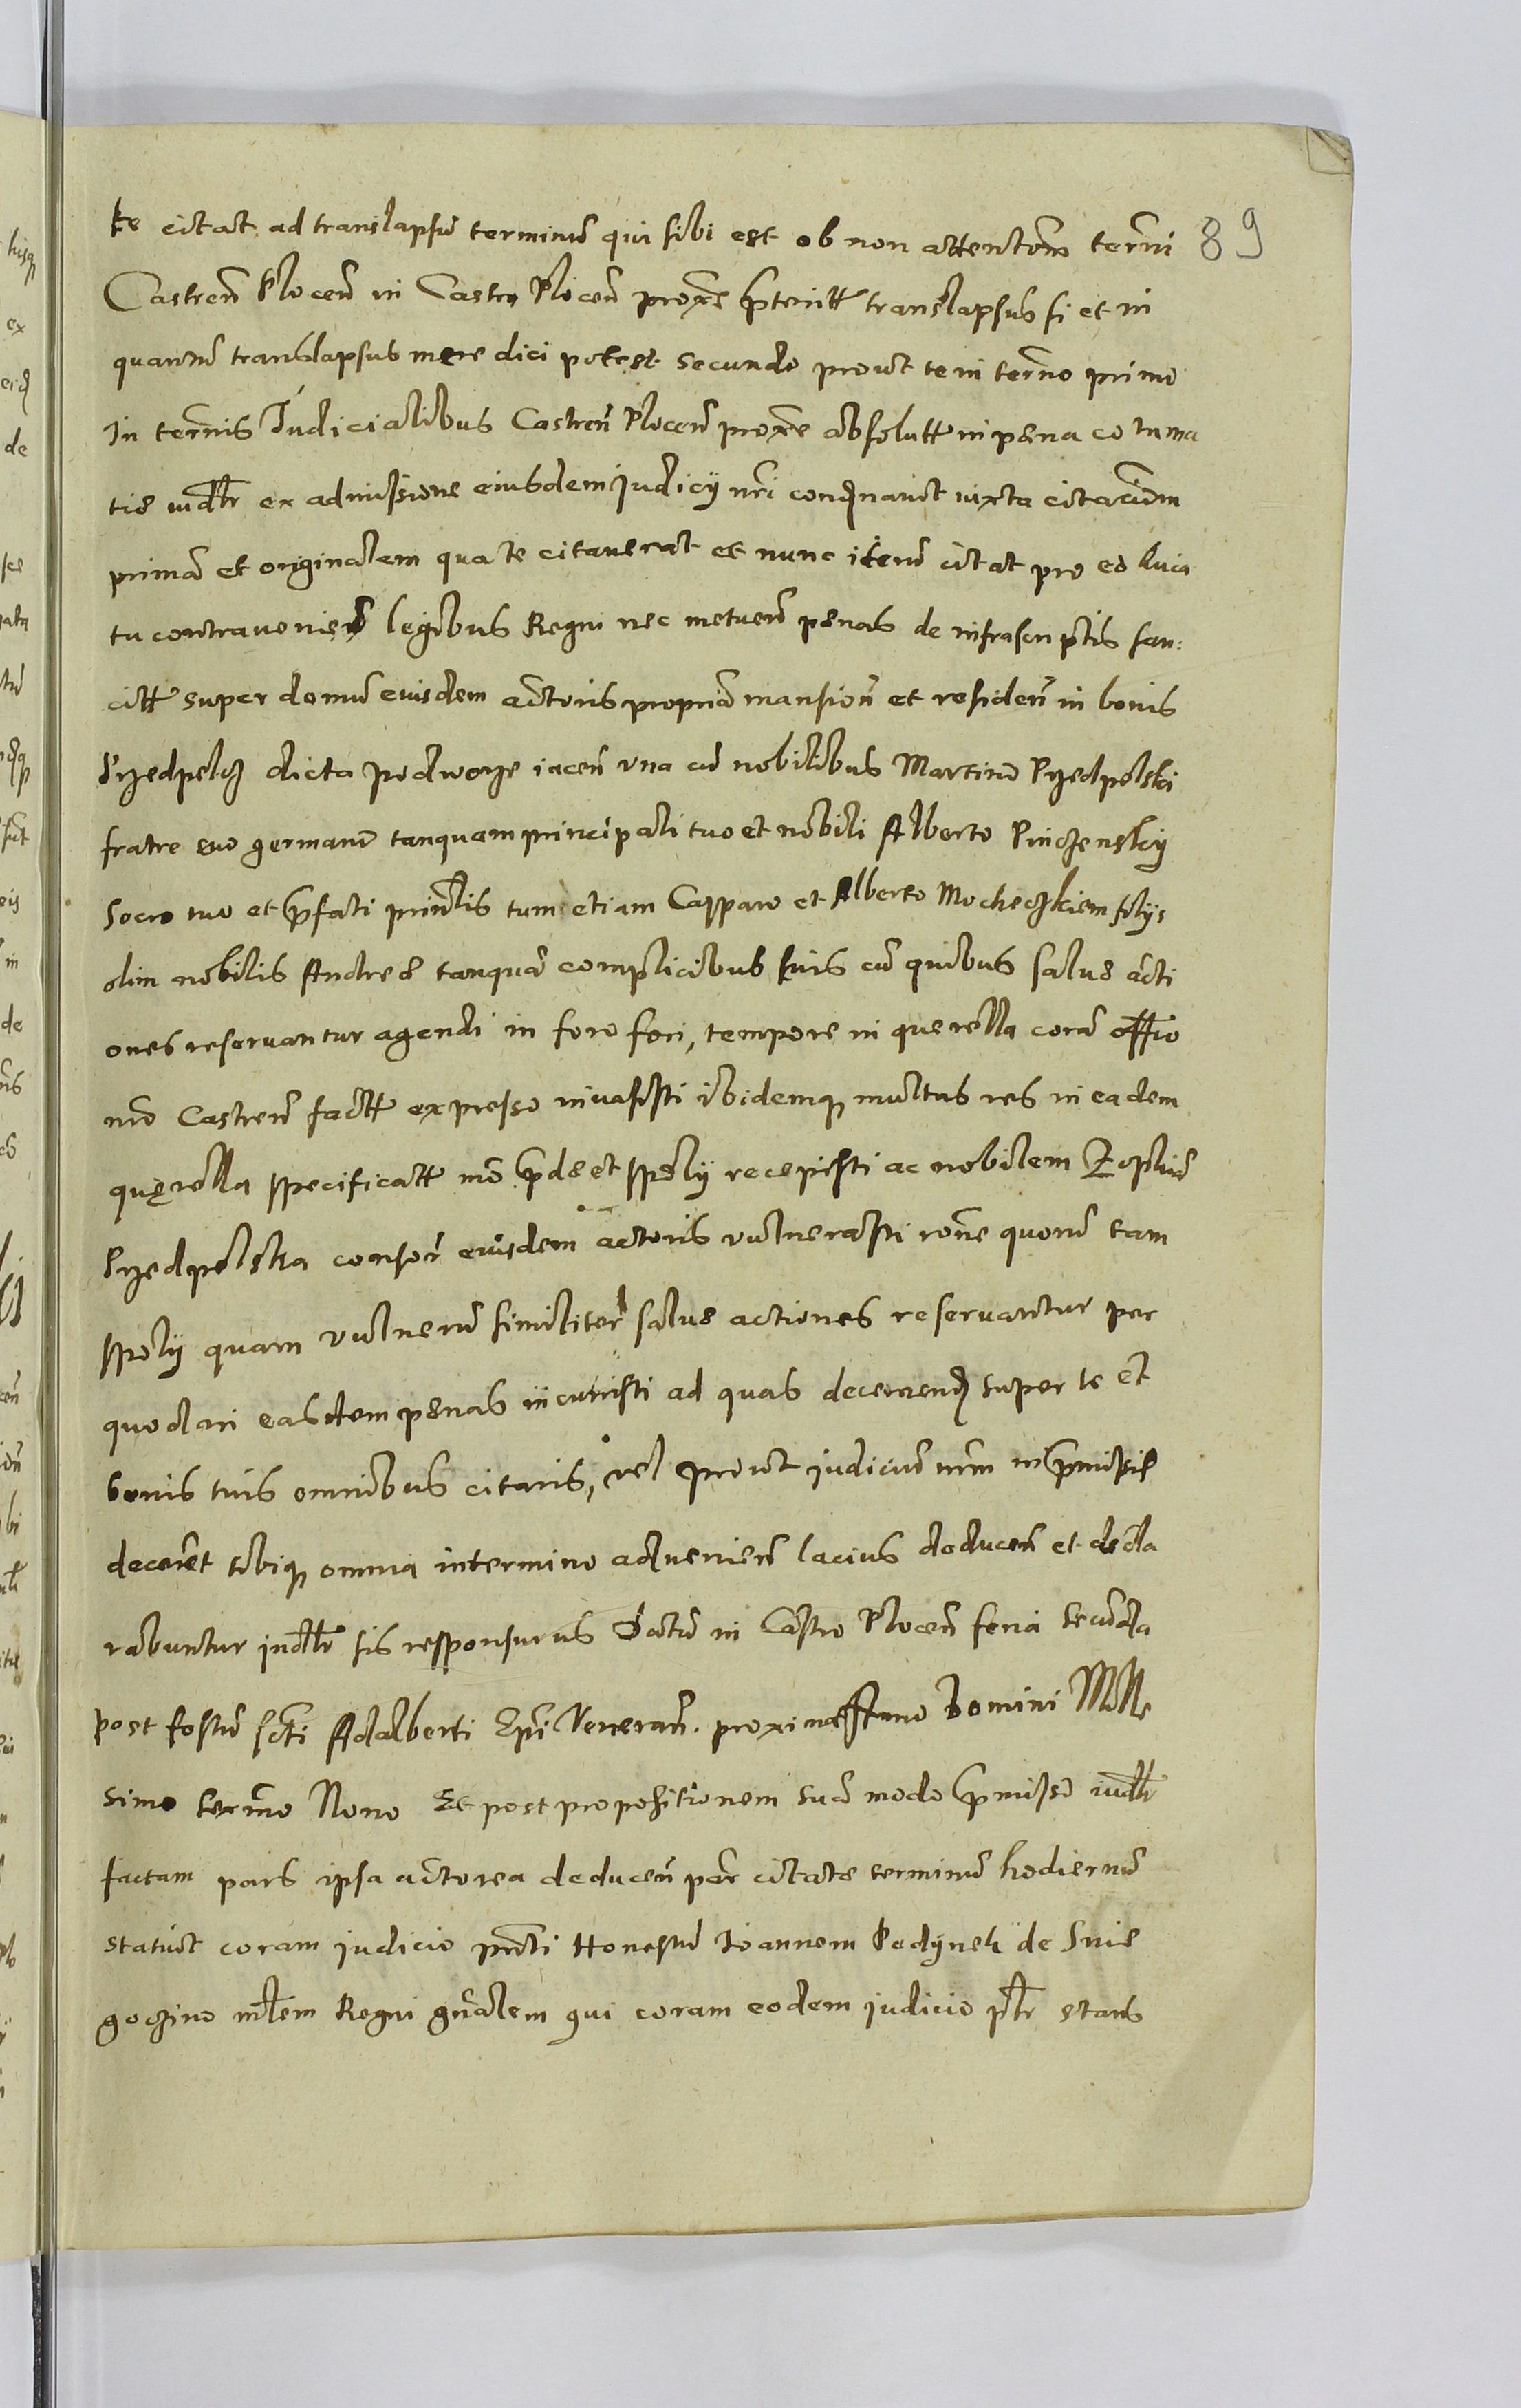 89
te citat ad translapsũ terminũ qui sibi est ob non attentõm termi
Castreñ Ploceñ in Castro Ploceñ proxe p̃teritt translapsus si et in
quantũ translapsus mere dici potest secundo prout te in termo primo
In termis Judicialibus Castreñ Ploceñ proxe absolutt in pena cotuma
tie iudtr ex admissione eiusdem Judicij nri condnauit iuxta citaciom
primã et originalem qua te citauerat et nunc iterũ citat pro eo quia
tu contraueniens legibus Regni nec metueñ penas de infrascriptis san:
citt super domũ eiusdem actoris propriã mansioñ et resideñ in bonis
Przedpelcz dicta podworze iaceñ vna cũ nobilibus Martino Przedpelski
fratre suo germano tanquam principali tuo et nobili Alberto
socro tuo et p̃fati prinlis tum etiam Casparo et Alberto filijs
olim nobilis Andree tanquã complicibus suis cũ quibus salue acti
ones reseruantur agendi in foro fori, tempore in querella corã offio
nro Castreñ factt expresso inuasisti ibidemq multas res in eadem
querella specificatt mõ p̃de et spolij recepisti ac nobilem Zophiã
Przedpelska consor̃ eiusdem actoris vulnerasti rone quorũ tam
spolij quam vulnerũ similiter salue actiones reseruantur per
quod in easdem penas incurristi ad quas decernend super te et
bonis tuis omnibus citaris, vel prout judiciũ nrm in p̃missis
decernet tibiq omnia in termino aduenien lacius deduceñ et decla
rabuntur judtr sis responsurus Datũ in Castro Ploceñ feria secunda
post festũ scti Adalberti Epi Venerañ. proxima Anno Domini Mille
simo Nono Et post propositionem suã modo p̃misso iudtr
factam pars ipsa actorea deduceñ per citate terminũ hodiernũ
statuit coram judicio pnti Honestũ Joannem de Snie
goczino mltem Regni gnalem qui coram eodem judicio pltr stans